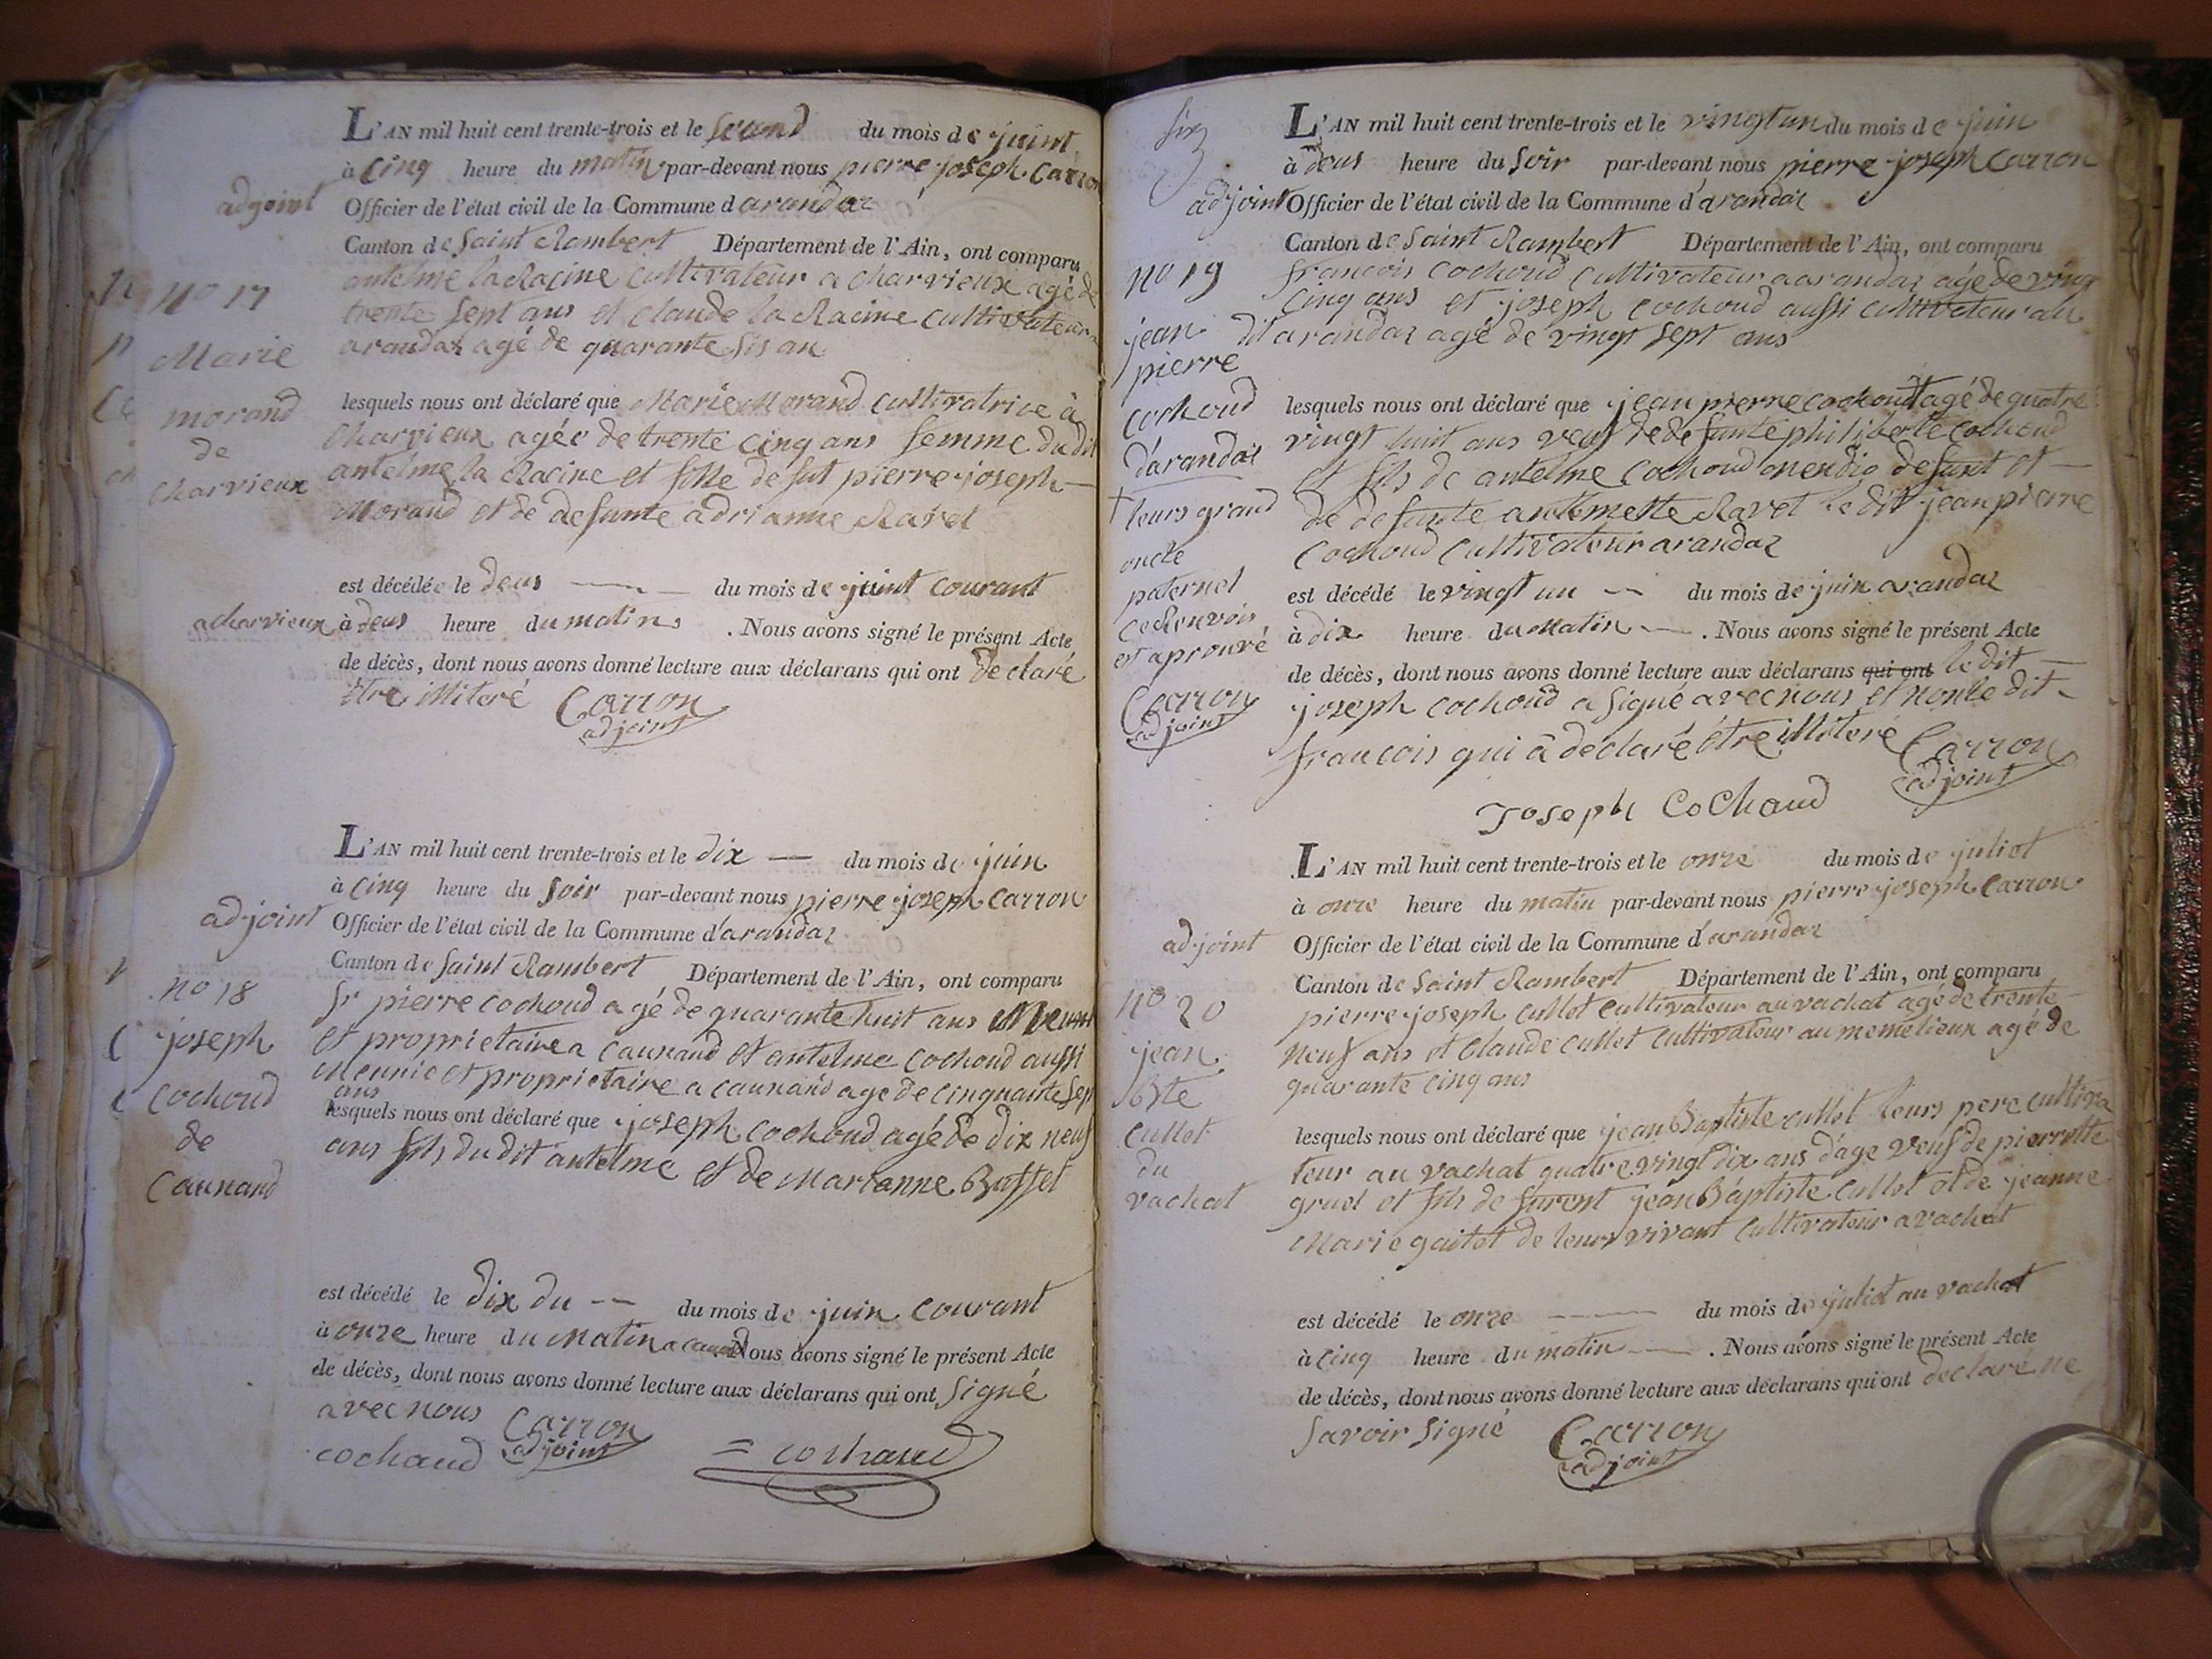 L'AN mil huit cent trente-trois et le second du mois de juint
à cinq heure du matin par-devant nous pierre joseph Carron
adjoint Officier de l'état civil de la Commune d arandaz
Canton de Saint Rambert Département de l'Ain, ont comparu
antelme la Racine cultivateur a charvieux agé de
trente sept ans et claude la Racine cultivateur
arandaz agé de quarante sis an
no 17
Marie
morand
de
charvieux
lesquels nous ont déclaré que Marie Morand cultivatrice à
Charvieux agée de trente cinq ans femme du dit
antelme la Racine et fille de fut pierre joseph
Morand et de defunte adrianne Ravet
est décédée le deus du mois de juint courant
acharvieux à deus heure du matin . Nous avons signé le présent Acte
de décès, dont nous avons donné lecture aux déclarans qui ont declaré
être illiteré Carron
adjoint
L'AN mil huit cent trente-trois et le dix du mois de juin
à cinq heure du soir par-devant nous pierre joseph carron
adjoint Officier de l'état civil de la Commune d'arandaz
Canton de Saint Rambert Département de l'Ain, ont comparu
sr pierre cochoud agé de quarante huit ans
et proprietaire a caunand et antelme cochoud aussi
Meunie et proprietaire a caunand age de cinquante sep
ans
no 18
joseph
cochoud
de
Caunand
lesquels nous ont déclaré que joseph cochoud agé de dix neuf
ans fils du dit antelme et de Marianne Buffet
est décédé le dix du du mois de juin courant
à onze heure du Matin a Nous avons signé le présent Acte
de décès, dont nous avons donné lecture aux déclarans qui ont signé
avec nous Carron
adjoint
cochaud = cochaud
six
L'AN mil huit cent trente-trois et le vingt un du mois de juin
à deus heure du soir par-devant nous pierre joseph Carron
adjoint Officier de l'état civil de la Commune d'arandaz
Canton de Saint Rambert Département de l'Ain, ont comparu
francois cochoud cultivateur a arandaz agé de vingt
cinq ans et joseph cochoud aussi cultivateur au
dit arandaz agé de vingt sept ans
no 19
jean
pierre
cochoud
d'arandaz
+ leurs grand
oncle
paternel
ce Renvois
est aprouvé
Carron
adjoint
lesquels nous ont déclaré que jean pierre cochoud + agé de quatre
vingt huit ans veuf de defunte philiberte cochoud
et fils de antelme cochoud defunt et
de defunte antemette Ravet le dit jean pierre
cochoud cultivateur arandaz
est décédé le vingt un du mois de juin arandaz
à dix heure du Matin . Nous avons signé le présent Acte
de décès, dont nous avons donné lecture aux déclarans qui ont le dit
joseph cochoud a signé avec nous et non le dit
francois qui à declaré être illiteré Carron
adjoint
Joseph CoChaud
L'AN mil huit cent trente-trois et le onze du mois de juliet
à onze heure du matin par-devant nous pierre joseph Carron
adjoint Officier de l'état civil de la Commune d'arandaz
Canton de Saint Rambert Département de l'Ain, ont comparu
pierre joseph cullet cultivateur au vachat agé de trente
neuf ans et Claude cullet cultivateur au meme lieux agé de
quarante cinq ans
no 20
jean
Bte
Cullet
du
vachat
lesquels nous ont déclaré que jean Baptiste cullet leurs pere cultiva
teur au vachat quatre vingt dix ans d'age veuf de pierrette
gruel et fils de furent jean Baptiste Cullet et de jeanne
Marie guitet de leurs vivant cultivateur a vachat
est décédé le onze du mois de juliet au vachat
à cinq heure du matin . Nous avons signé le présent Acte
de décès, dont nous avons donné lecture aux déclarans qui ont declaré ne
savoir signé Carron
adjoint